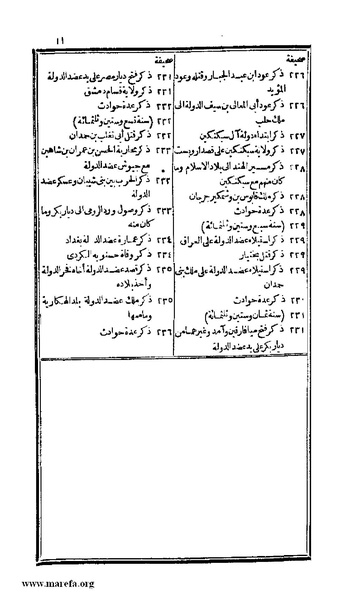 ١١
صحيفة
٢٢٦ ذكر عود ابن عبد الجبار وقتله وعود
المؤيد
٢٢٦ ذكر عود أبى المعالى بن سيف الدولة الى
ملك حلب
٢٢٧ ذكر ابتداء دولة آل سبكتكين
٢٢٧ ذكر ولاية سبكتكين على قصدار وبست
٢٢٨ ذكر مسير الهند الى بلاد الاسلام وما
كان منهم مع سبكتكين
٢٢٨ ذكر ملك قابوس بن وشمكير جرجان
٢٢٨ ذكر عدة حوادث
٢٢٩ (سنة سبع وستين وثلثمائة)
٢٢٩ ذكر استيلاء عضد الدولة على العراق
٢٢٩ ذكر قتل بختيار
٢٢٩ ذكر استيلاء عضد الدولة على ملك بنى
حمدان
٢٣٠ ذكر عدة حوادث
٢٣١ (سنة ثمان وستين وثلثمائة)
٢٣١ ذكر فتح ميافارقين وآمد وغيرهما من
ديار بكر على يد عضد الدولة
صحيفة
٢٣١ ذكر فتح ديار مضر على يد عضد الدولة
٢٣١ ذكر ولاية قسام دمشق
٢٣٢ ذكر عدة حوادث
٢٣٢ (سنة تسع وستين وثلثمائة)
٢٣٢ ذكر قتل أبى تغلب بن حمدان
٢٣٣ ذكر محاربة الحسن بن عمران بن شاهين
مع جيوش عضد الدولة
٢٣٣ ذكر الحرب بين بنى شيبان وعسكر عضد
الدولة
٢٣٣ ذكر وصول ورد الرومى الى ديار بكر وما
كان منه
٢٣٤ ذكر عمارة عضد الدولة بغداد
٢٣٤ ذكر وفاة حسنويه الكردى
٢٣٥ ذكر قصد عضد الدولة أخاه فخر الدولة
وأخذ بلاده
٢٣٥ ذكر ملك عضد الدولة بلد الهكارية
وما معها
٢٣٦ ذكر عدة حوادث
www.marefa.org